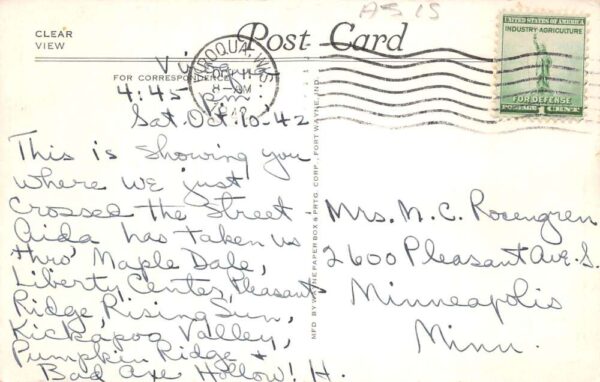 AS IS
CLEAR
VIEW
Post Card
UNITED STATES OF AMERICA
INDUSTRY AGRICULTURE
FOR DEFENSE
POSTAGE 1 CENT
VIROQUA, WIS.
OCT 11
8 - AM
1942
FOR CORRESPONDENCE
4:45 P.m.
Sat. Oct. 10-42
This is showing you
where we just
crossed the street
Aida has taken us
thro' Maple Dale,
Liberty, Center, Pleasant
Ridge, Rising Sun,
Kickapoo Valley,
Pumpkin Ridge +
Bad Axe Hollow! H.
MFD BY WAYNE PAPER BOX & PRTG. CORP., FORT WAYNE, IND.
Mrs. N. C. Rosengren
2600 Pleasant Ave. S.
Minneapolis
Minn.